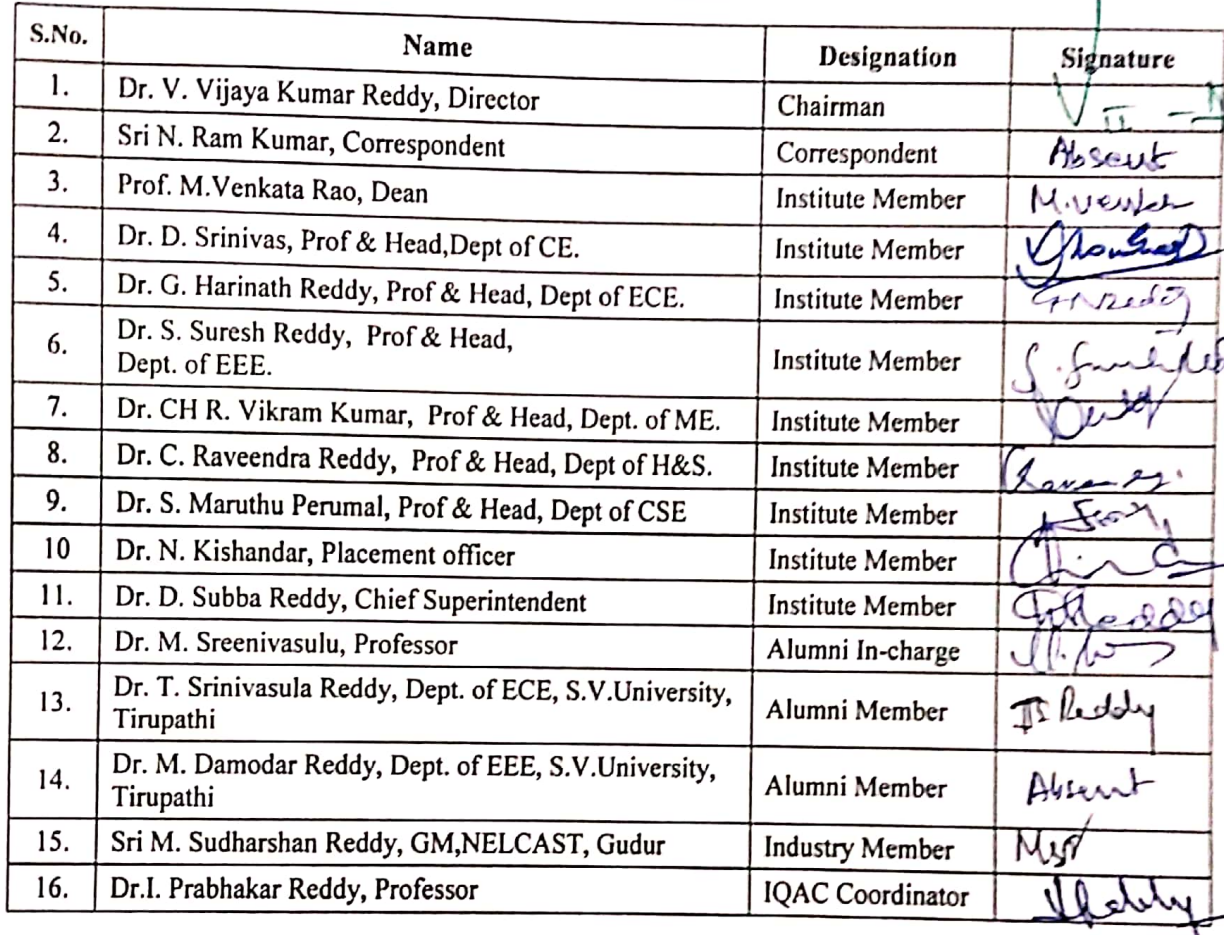 S.No. Name Designation Signature
1. Dr. V. Vijaya Kumar Reddy, Director Chairman
2. Sri N. Ram Kumar, Correspondent Correspondent Absent
3. Prof. M.Venkata Rao, Dean Institute Member M.Venkat
4. Dr. D. Srinivas, Prof & Head,Dept of CE. Institute Member
5. Dr. G. Harinath Reddy, Prof & Head, Dept of ECE. Institute Member GHReddy
6. Dr. S. Suresh Reddy, Prof & Head,
Dept. of EEE. Institute Member
7. Dr. CH R. Vikram Kumar, Prof & Head, Dept. of ME. Institute Member
8. Dr. C. Raveendra Reddy, Prof & Head, Dept of H&S. Institute Member
9. Dr. S. Maruthu Perumal, Prof & Head, Dept of CSE Institute Member
10 Dr. N. Kishandar, Placement officer Institute Member
11. Dr. D. Subba Reddy, Chief Superintendent Institute Member
12. Dr. M. Sreenivasulu, Professor Alumni In-charge
13. Dr. T. Srinivasula Reddy, Dept. of ECE, S.V.University,
Tirupathi Alumni Member TS Reddy
14. Dr. M. Damodar Reddy, Dept. of EEE, S.V.University,
Tirupathi Alumni Member Absent
15. Sri M. Sudharshan Reddy, GM,NELCAST, Gudur Industry Member
16. Dr.I. Prabhakar Reddy, Professor IQAC Coordinator